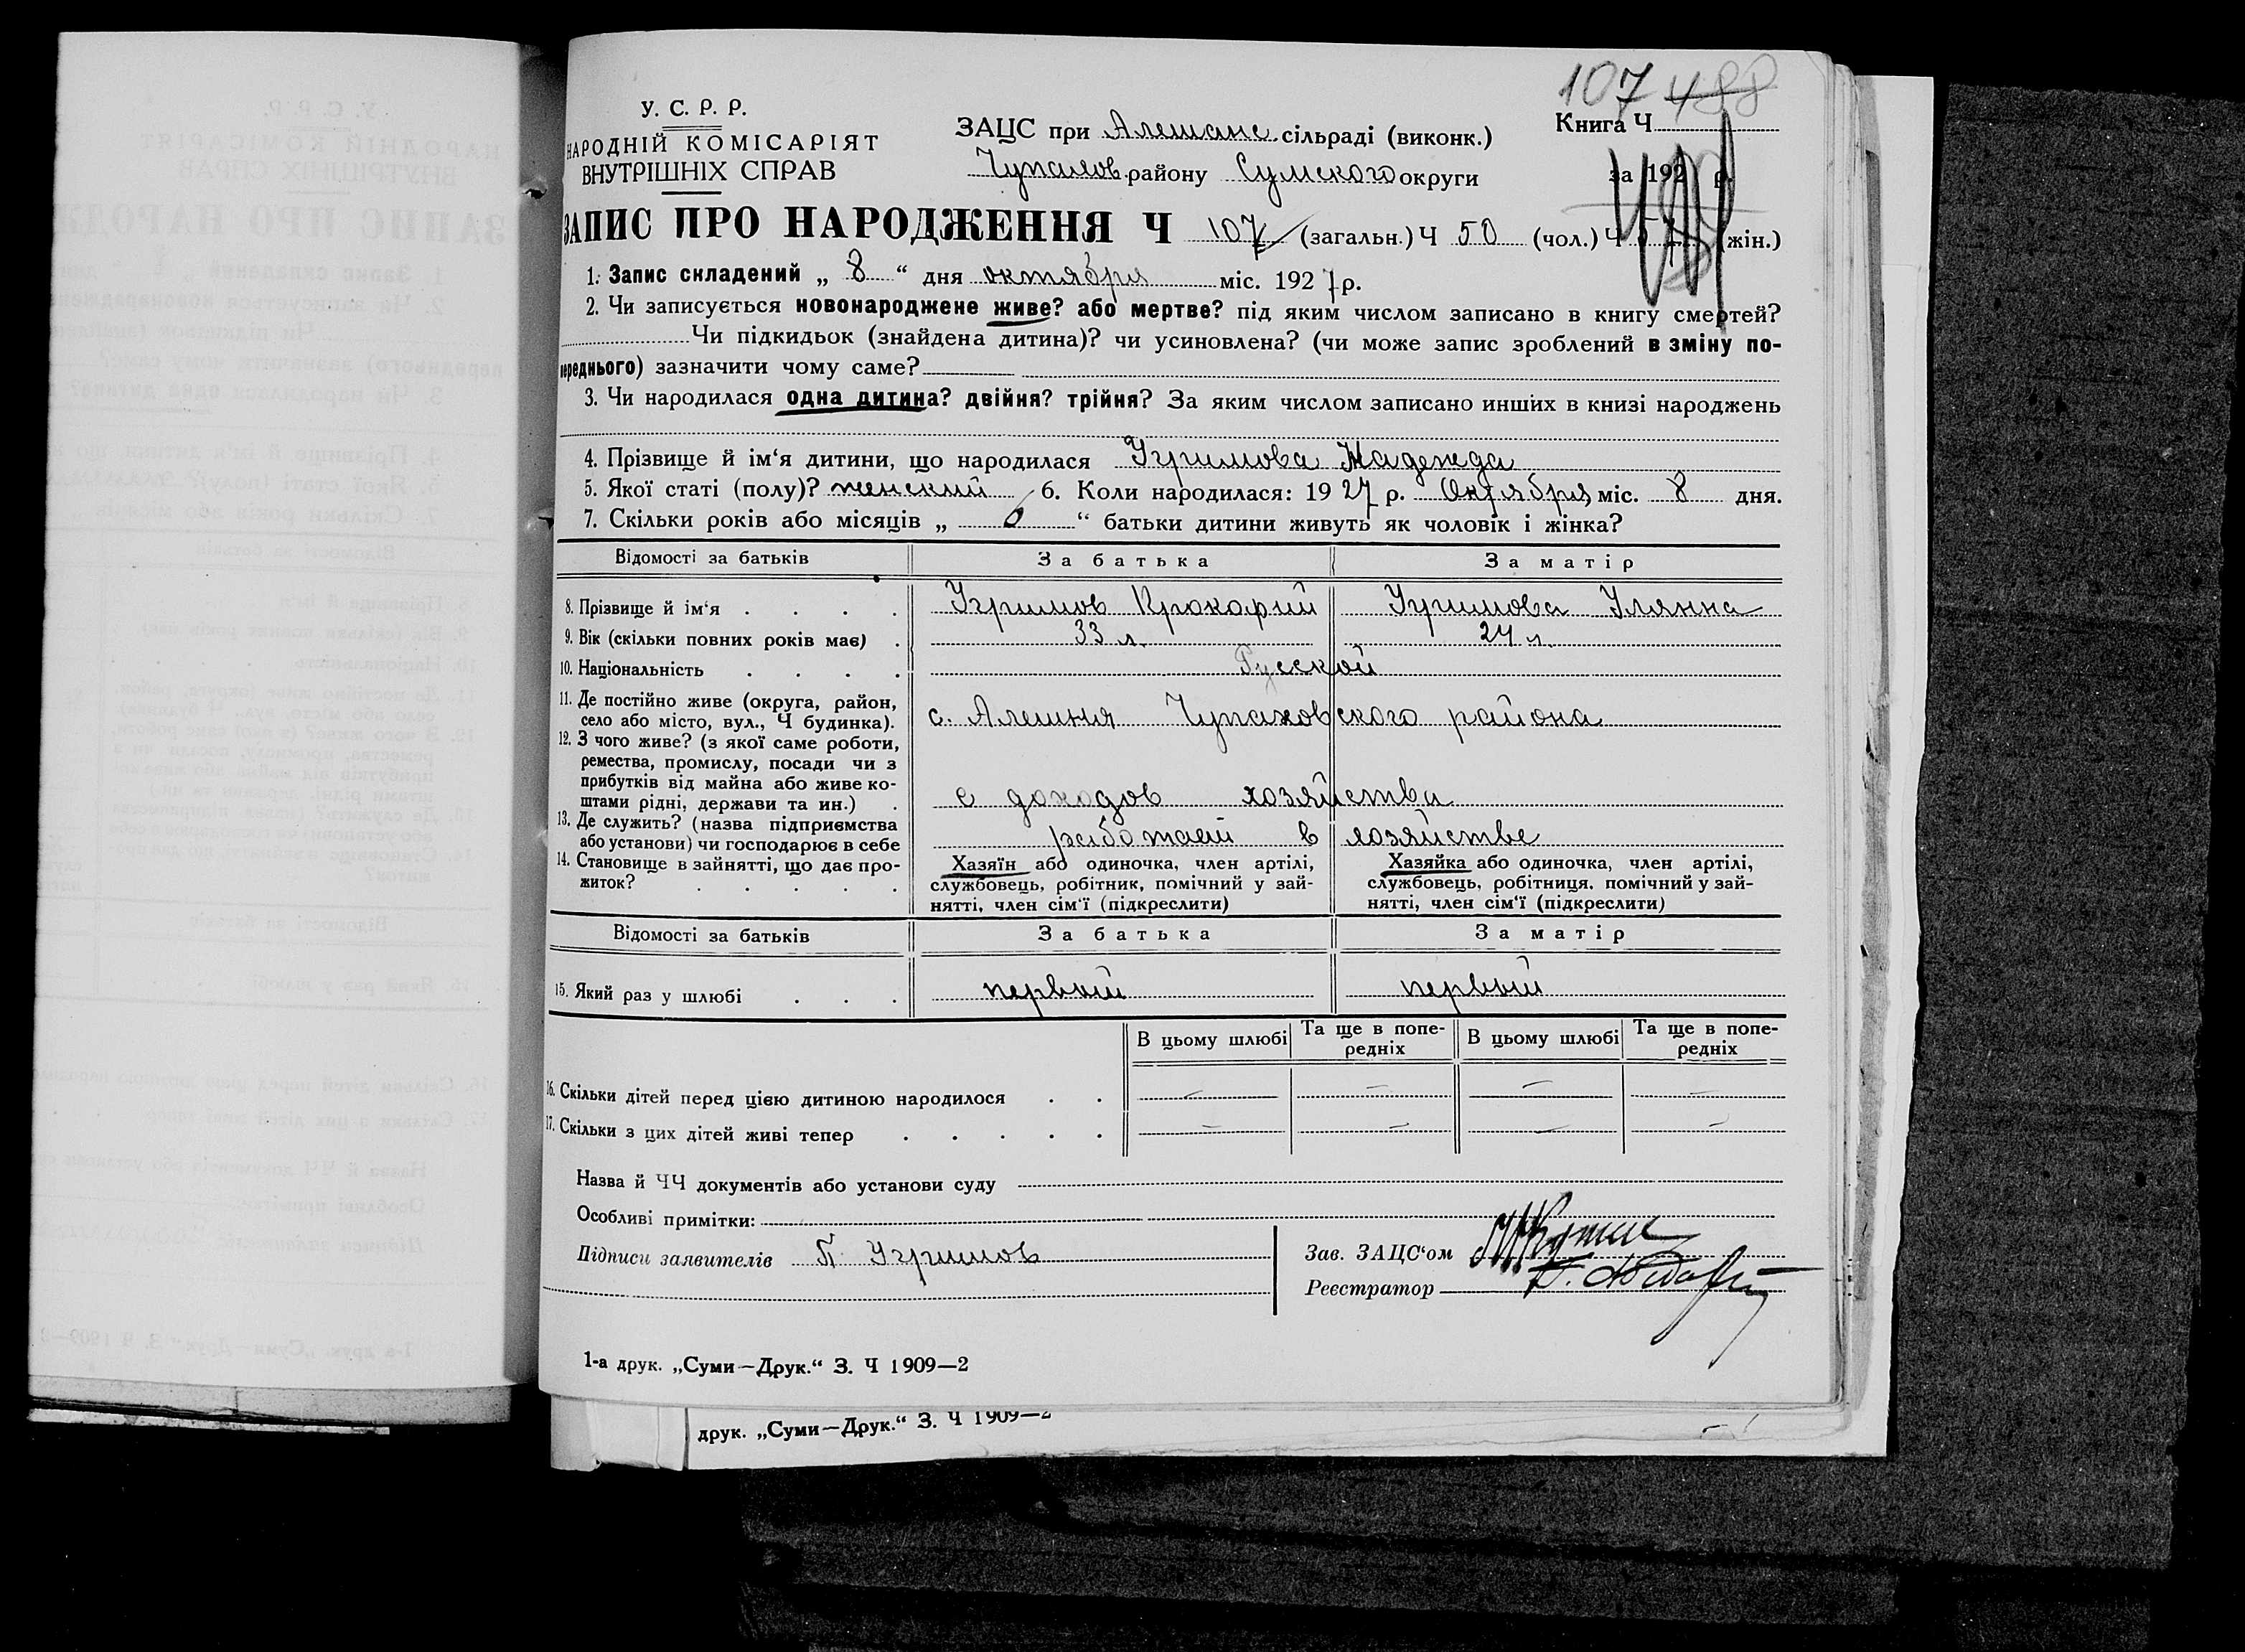 107 488
У. С. Р. Р.
НАРОДНІЙ КОМІСАРІЯТ
ВНУТРІШНІХ СПРАВ
ЗАЦС при Алешанс. сільраді (виконк.)
Книга Ч
Чупахов. району Сумского округи
за 192 р.
ЗАПИС ПРО НАРОДЖЕННЯ Ч 107 (загальн.) Ч 50 (чол.) Ч 57 (жін.)
1. Запис складений „ 8 “ дня октября міс. 1927 р.
2. Чи записується новонароджене живе? або мертве? під яким числом записано в книгу смертей?
Чи підкидьок (знайдена дитина)? чи усиновлена? (чи може запис зроблений в зміну по-
переднього) зазначити чому саме?
3. Чи народилася одна дитина? двійня? трійня? За яким числом записано инших в книзі народжень
4. Прізвище й ім‘я дитини, що народилася Угримова Надежда
5. Якої статі (полу)? женский 6. Коли народилася: 1927 р. Октября міс. 8 дня.
7. Скільки років або місяців „ 6 “ батьки дитини живуть як чоловік і жінка?
Відомості за батьків За батька За матір
8. Прізвище й ім‘я . . . . Угримов Прокофий Угримова Улянна
9. Вік (скільки повних років має) . 33 л. 27 л.
10. Національність . . . . Русской
11. Де постійно живе (округа, район,
село або місто, вул., Ч будинка). с. Алешня Чупаховского района
12. З чого живе? (з якої саме роботи,
ремества, промислу, посади чи з
прибутків від майна або живе ко-
штами рідні, держави та ин.) . с доходов хозяйства
13. Де служить? (назва підприємства
або установи) чи господарює в себе работает в хозяйстве
14. Становище в зайнятті, що дає про-
житок? . . . . .
Хазяїн або одиночка, член артілі,
службовець, робітник, помічний у зай-
нятті, член сім‘ї (підкреслити)
Хазяйка або одиночка, член артілі,
службовець, робітниця, помічний у зай-
нятті, член сім‘ї (підкреслити)
Відомості за батьків За батька За матір
15. Який раз у шлюбі . . . первый первый
В цьому шлюбі Та ще в попе-
редніх В цьому шлюбі Та ще в попе-
редніх
16. Скільки дітей перед цією дитиною народилося . . — — — —
17. Скільки з цих дітей живі тепер . . . . . — — — —
Назва й ЧЧ документів або установи суду
Особливі примітки:
Підписи заявителів П Угримов
Зав. ЗАЦС‘ом
Реєстратор
1-а друк. „Суми—Друк.“ З. Ч 1909—2
друк. „Суми—Друк.“ З. Ч 1909—2